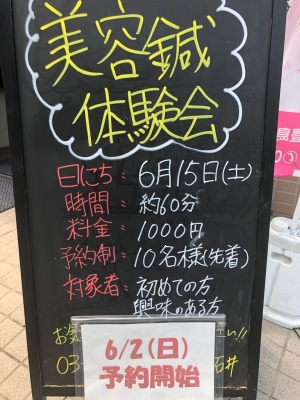 美容鍼
体験会
日にち: 6月15日(土)
時間: 約60分
料金: 1000円
予約制: 10名様(先着)
対象者: 初めての方
興味のある方
お気
い!!
03-
石井
6/2(日)
予約開始